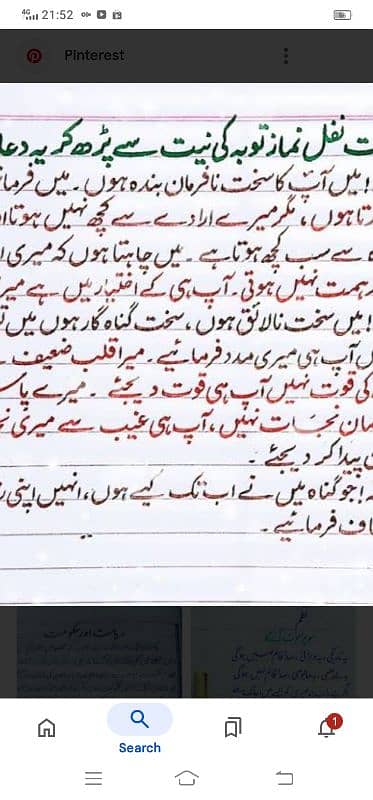 4G 21:52
Pinterest
ت نفل نماز توبہ کی نیت سے پڑھ کر یہ دعا
! میں آپ کا سخت نافرمان بندہ ہوں۔ میں فرما
رتا ہوں، مگر میرے ارادے سے کچھ نہیں ہوتا ا
ہ سے سب کچھ ہوتا ہے۔ میں چاہتا ہوں کہ میری ا
ہمت نہیں ہوتی۔ آپ ہی کے اختیار میں ہے میر
! میں سخت نالائق ہوں، سخت گناہ گار ہوں میں تو
ں آپ ہی میری مدد فرمائیے۔ میرا قلب ضعیف۔
کی قوت نہیں آپ ہی قوت دیجئے۔ میرے پاس
مان نجات نہیں، آپ ہی غیب سے میری نج
پیدا کر دیجئے۔
! جو گناہ میں نے اب تک کیے ہوں، انہیں اپنی ر
اف فرمائیے۔
ریاست اور حکومت
نظم
Search
1